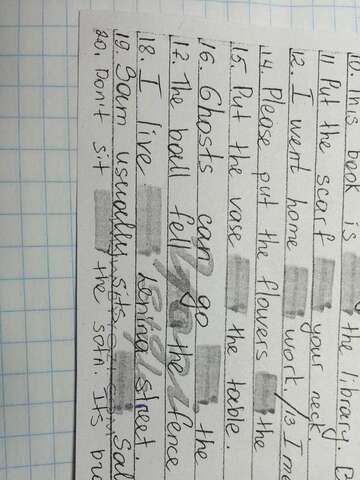 10. This book is the library.
11 Put the scarf your neck.
12. I went home work. 13. I me
14. Please put the flowers the
15. Put the vase the table.
16. Ghosts can go the
17. The ball fell the fence
18. I live Lenina street.
19. Sam usually sits Sal
20. Don't sit the sofa. It's